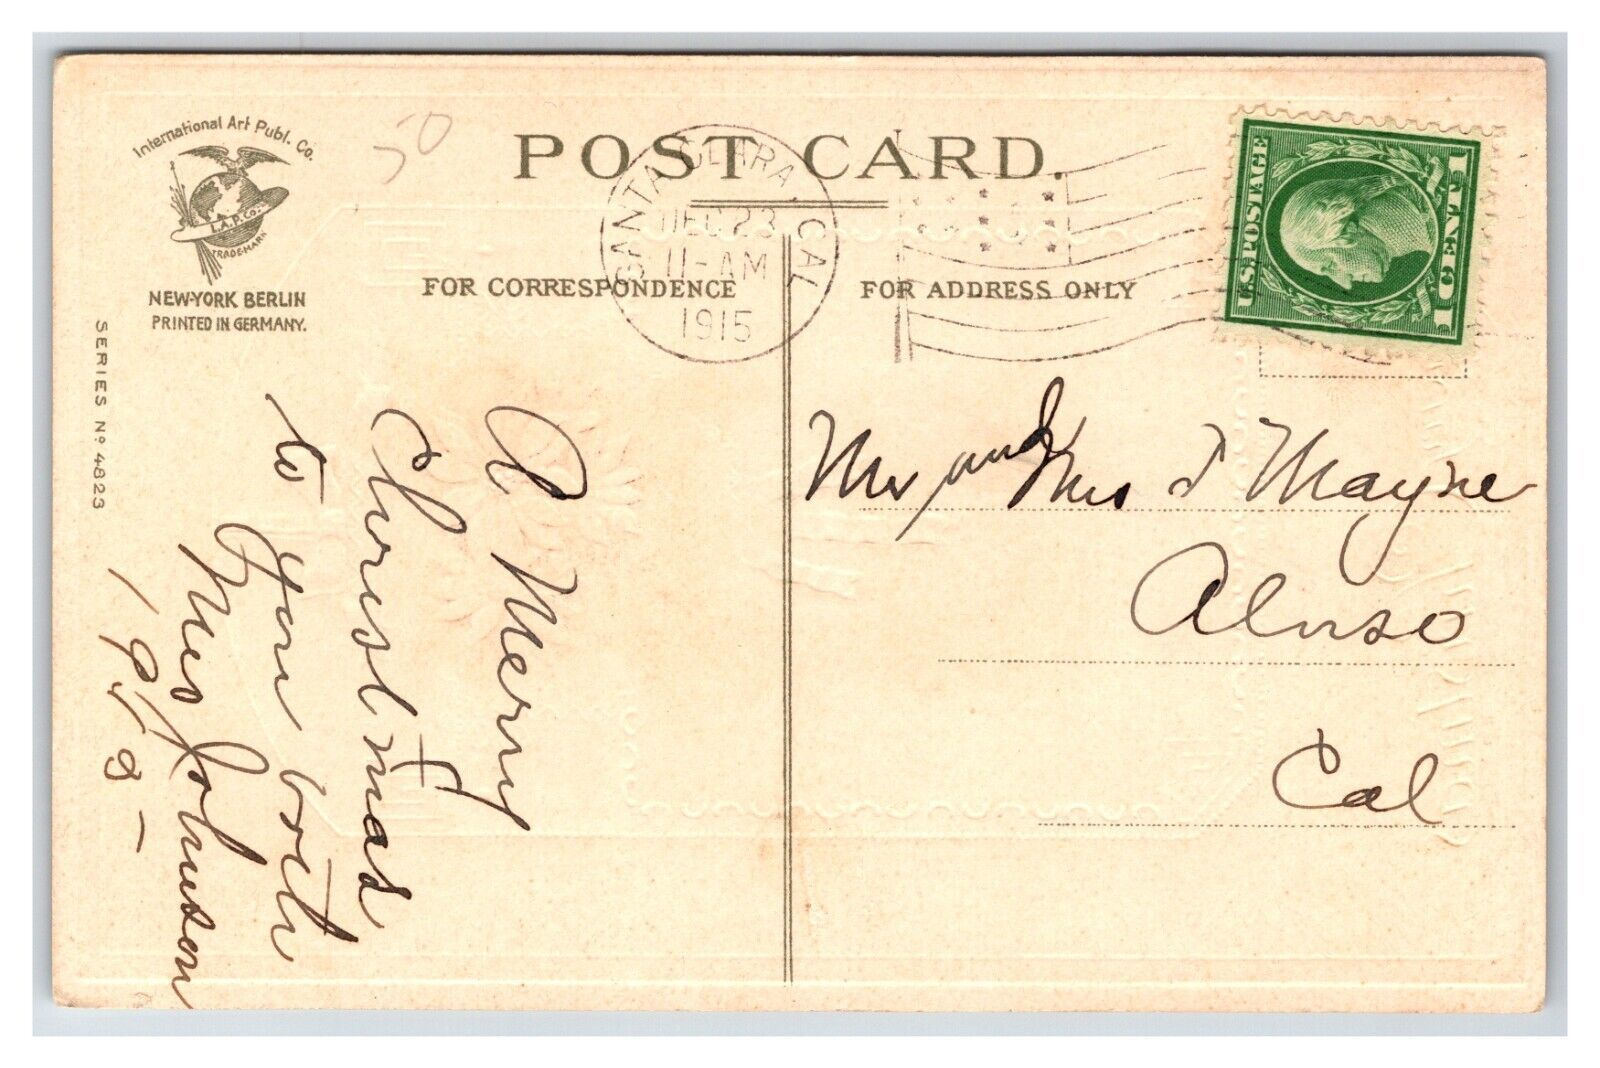 International Art Publ. Co.
I.A.P.Co.
TRADEMARK
NEW-YORK BERLIN
PRINTED IN GERMANY.
SERIES Nº 4823
50
POST CARD.
SANTA CLARA, CAL
DEC 23
11-AM
1915
FOR CORRESPONDENCE
FOR ADDRESS ONLY
U.S. POSTAGE
1 CENT 1
A Merry
Christmas
to
you both
Mrs Johnson
Mr and Mrs J Mayne
Alviso
Cal